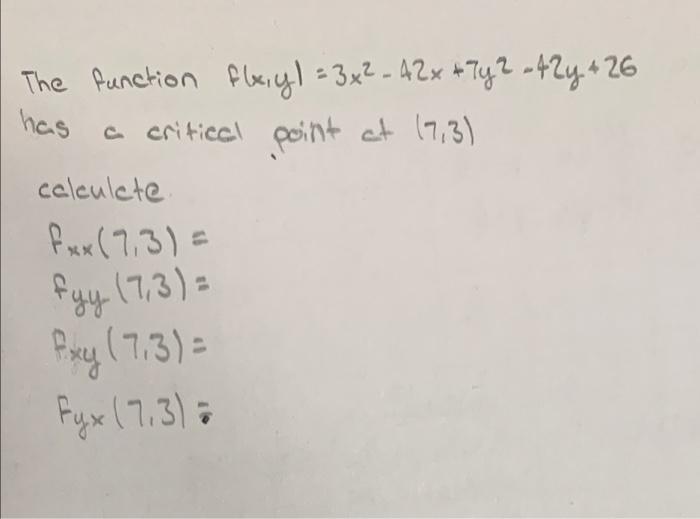 The function f(x,y) = 3x² - 42x + 7y² - 42y + 26
has a critical point at (7,3)
calculate.
fxx(7,3) =
fyy(7,3) =
fxy(7,3) =
Fyx(7,3) =